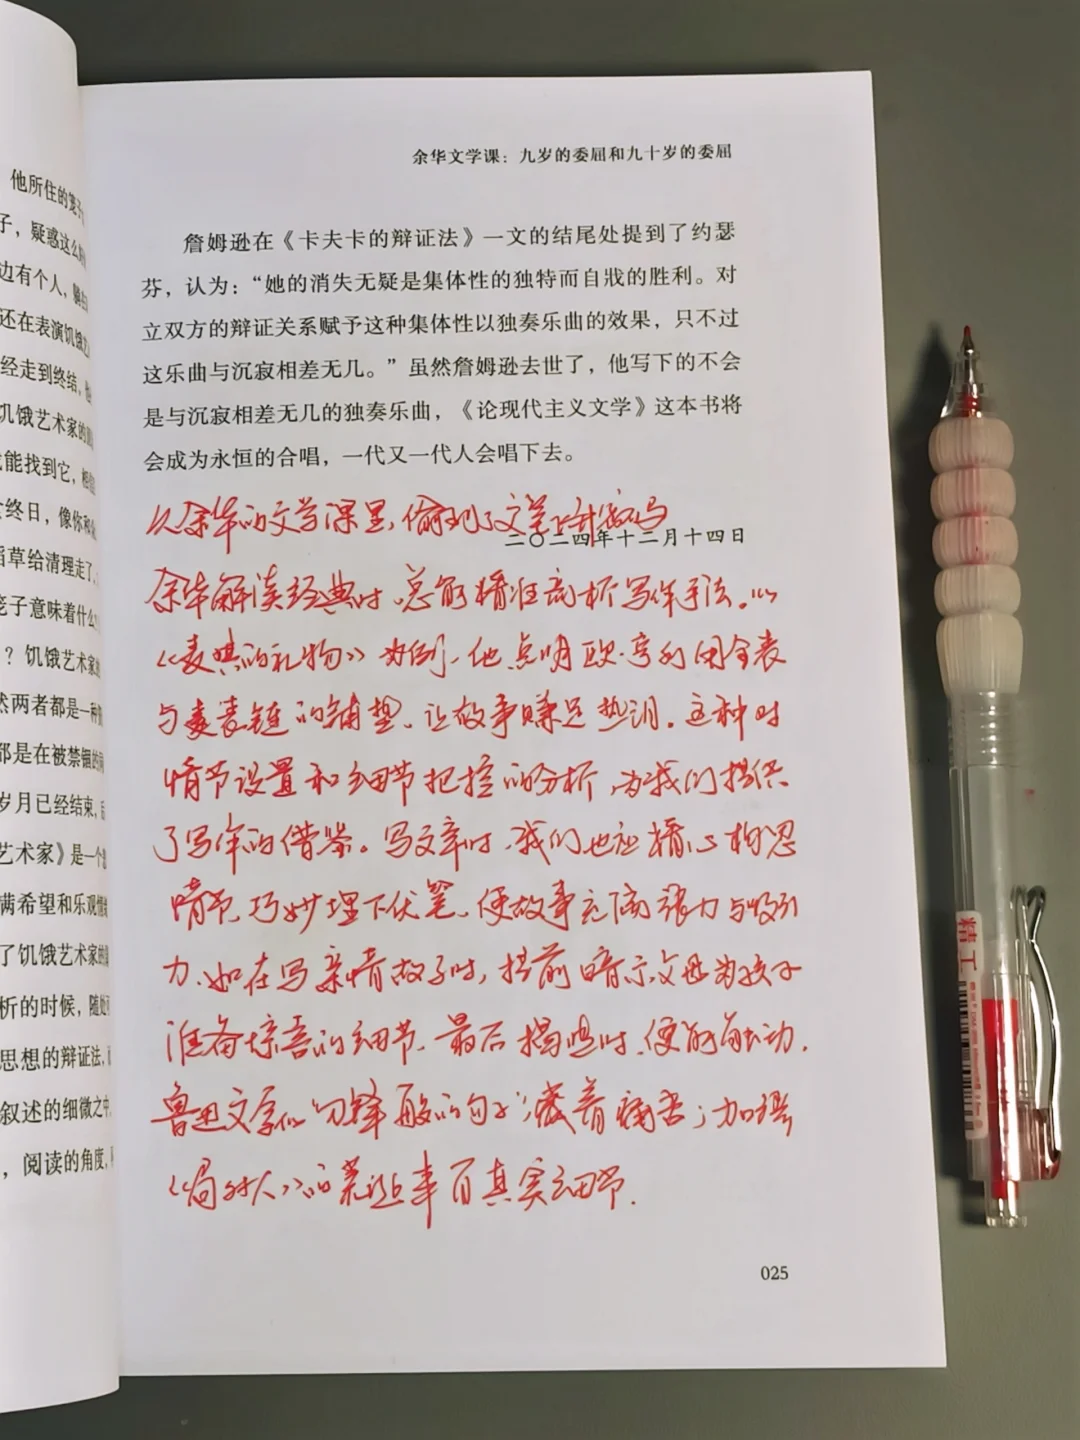 他所住的笼子
子，疑惑这么
边有个人，
还在表演饥饿艺
经走到终结，
饥饿艺术家的
能找到它，
终日，像你和
稻草给清理走了，
笼子意味着什么
？饥饿艺术家
然两者都是一种
都是在被禁锢的
岁月已经结束，后
艺术家》是一个
满希望和乐观情
了饥饿艺术家的
析的时候，随处
思想的辩证法，
叙述的细微之中，
，阅读的角度，
余华文学课：九岁的委屈和九十岁的委屈
詹姆逊在《卡夫卡的辩证法》一文的结尾处提到了约瑟
芬，认为：“她的消失无疑是集体性的独特而自戕的胜利。对
立双方的辩证关系赋予这种集体性以独奏乐曲的效果，只不过
这乐曲与沉寂相差无几。”虽然詹姆逊去世了，他写下的不会
是与沉寂相差无几的独奏乐曲，《论现代主义文学》这本书将
会成为永恒的合唱，一代又一代人会唱下去。
从余华的文学课里，偷到了文学密码
二〇二四年十二月十四日
余华解读经典时，总能精准剖析写作手法。以
《麦琪的礼物》为例，他点明欧·亨利用金表
与表链的铺垫，让故事赚足热泪。这种对
情节设置和细节把控的分析，为我们提供
了写作的借鉴。写文章时，我们也应精心构思
情节，巧妙埋下伏笔，使故事充满张力与吸引
力。如在写亲情故事时，提前暗示父母为孩子
准备惊喜的细节，最后揭晓时，便能触动。
鲁迅文字似刀锋般的句子，藏着痛苦；加缪
《局外人》的荒诞串百真实细节。
025
精工